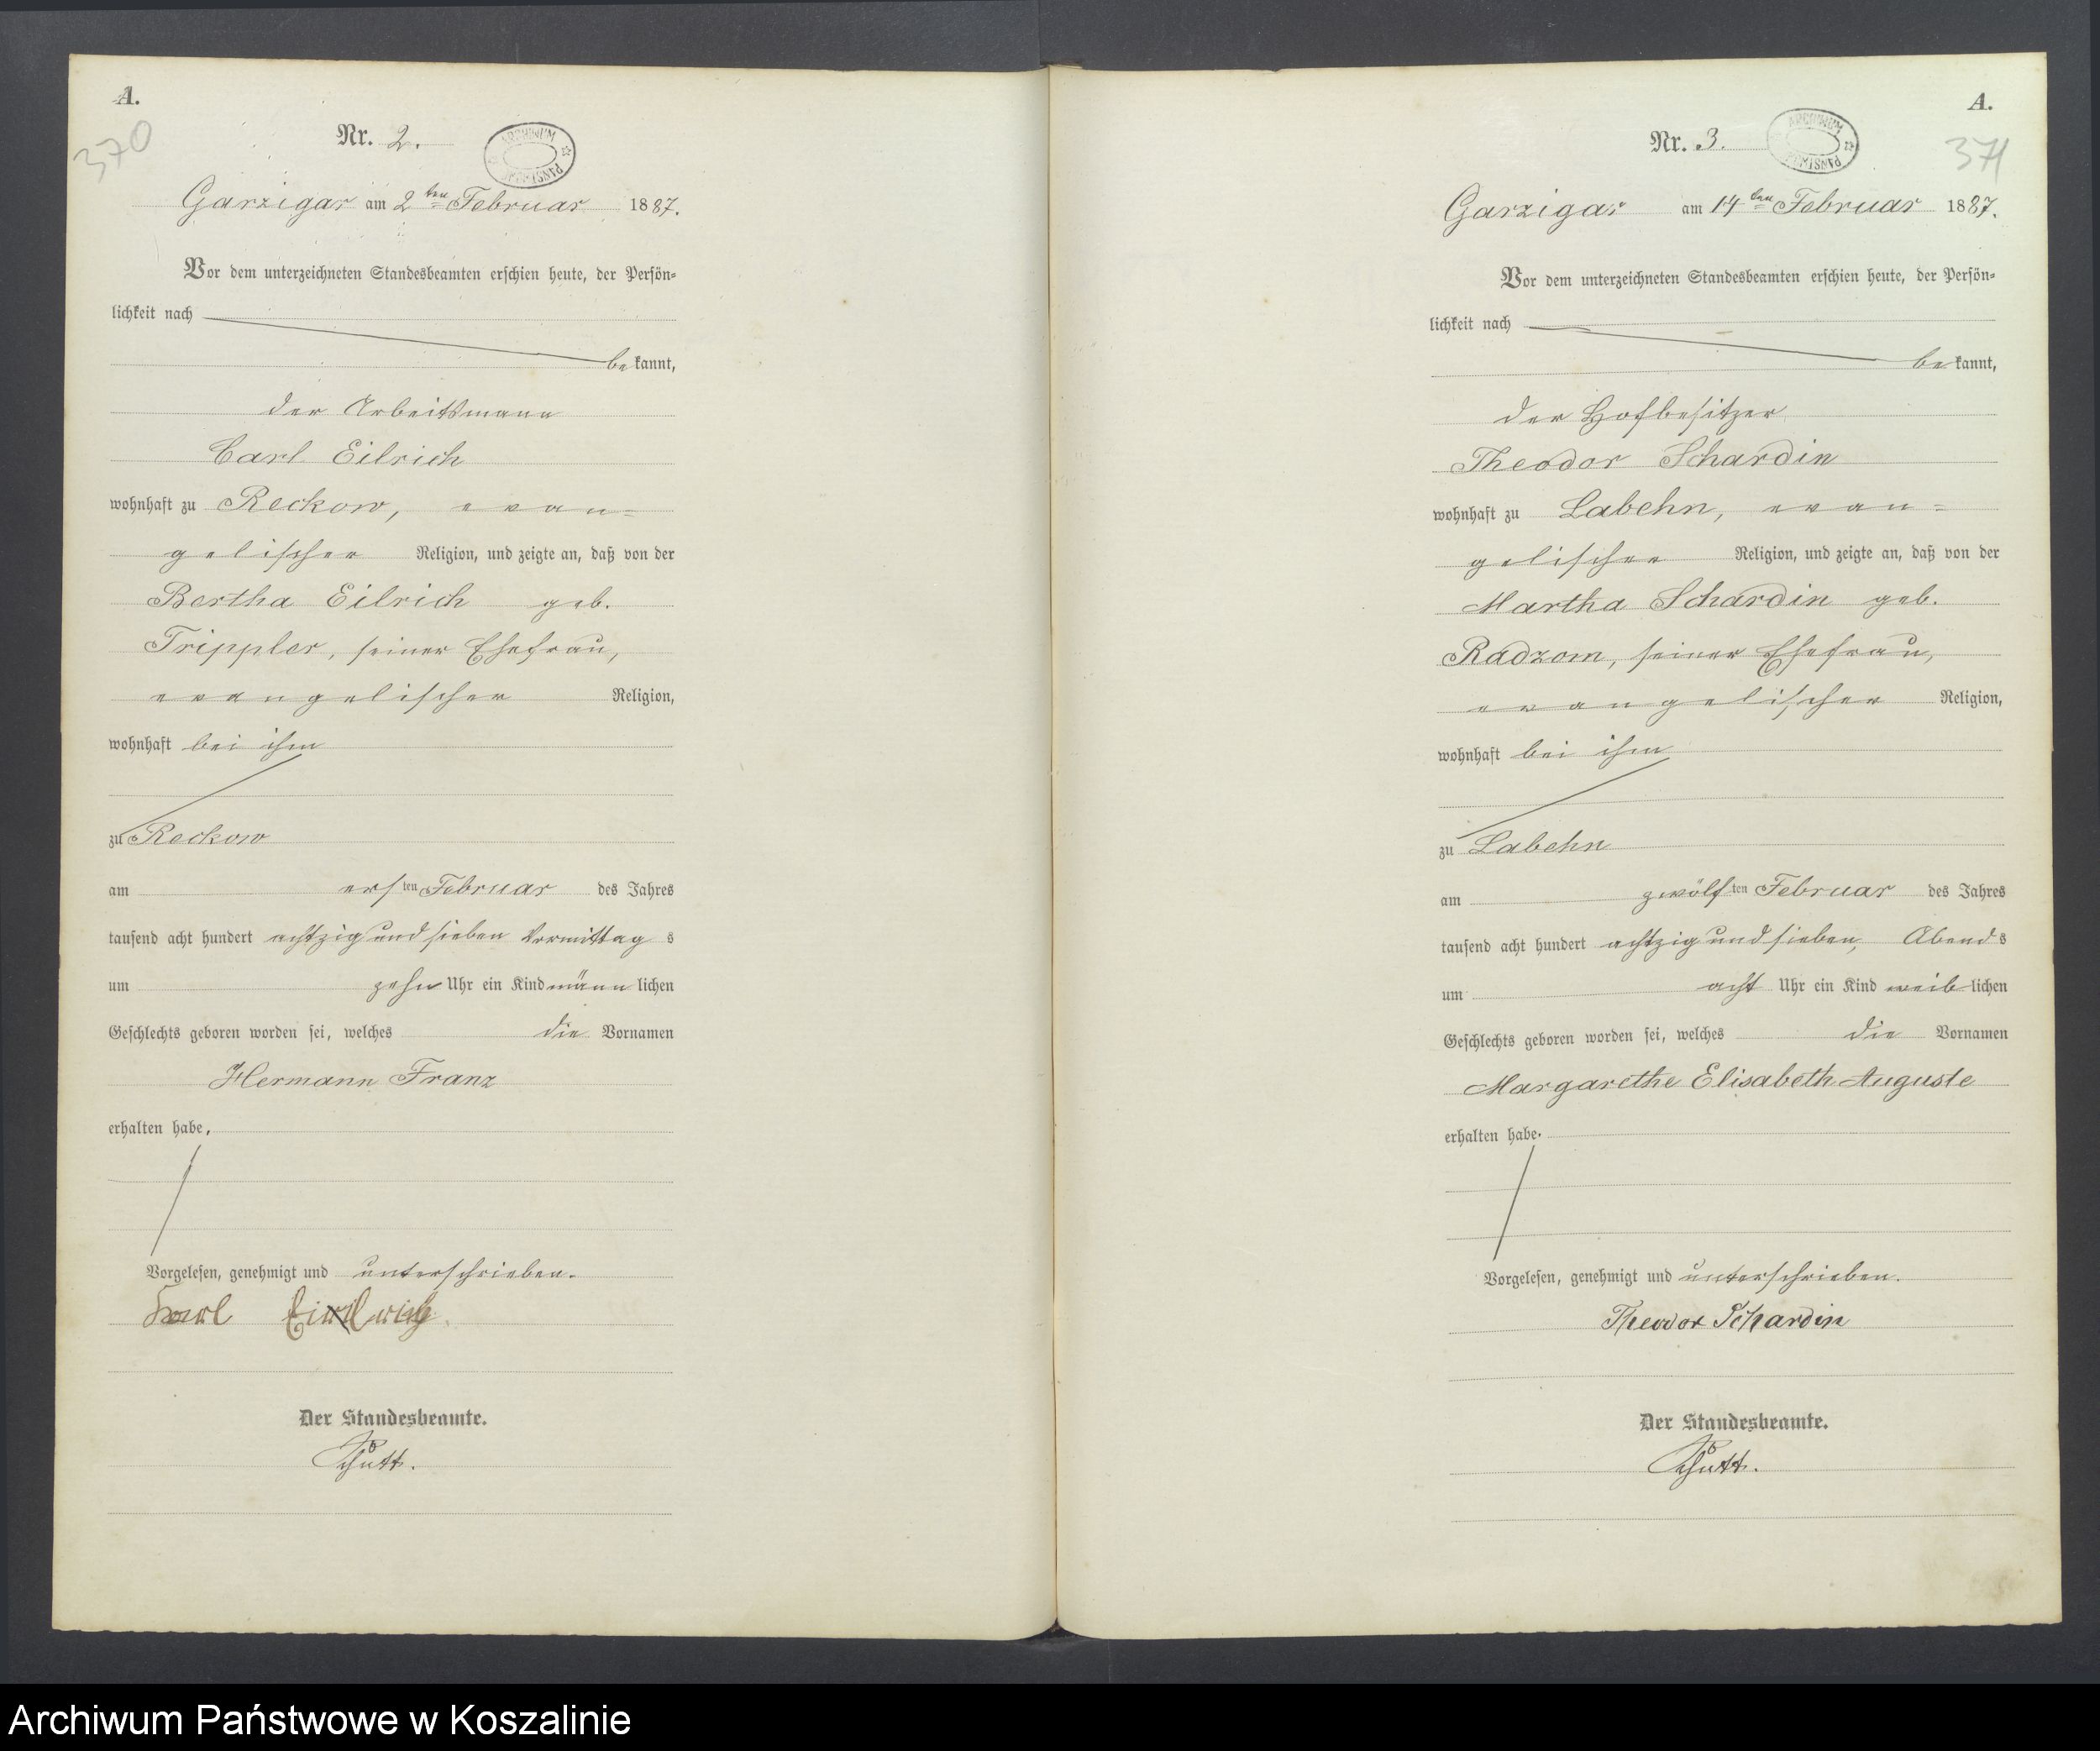 A.
370
Nr. 2.
ARCHIWUM PAŃSTWOWE
Garzigar am 2ten Februar 1887.
Vor dem unterzeichneten Standesbeamten erschien heute, der Persön-
lichkeit nach
bekannt,
der Arbeitsmann
Carl Eilrich
wohnhaft zu Reckow, evan=
gelischer Religion, und zeigte an, daß von der
Bertha Eilrich geb.
Trippler, seiner Ehefrau,
evangelischer Religion,
wohnhaft bei ihm
zu Reckow
am ersten Februar des Jahres
tausend acht hundert achtzig und sieben Vormittags
um zehn Uhr ein Kind männlichen
Geschlechts geboren worden sei, welches die Vornamen
Hermann Franz
erhalten habe.
Vorgelesen, genehmigt und unterschrieben.
Karl Eilrich
Der Standesbeamte.
A.
371
Nr. 3.
ARCHIWUM PAŃSTWOWE
Garzigar am 14ten Februar 1887.
Vor dem unterzeichneten Standesbeamten erschien heute, der Persön-
lichkeit nach
bekannt,
der Hofbesitzer
Theodor Schardin
wohnhaft zu Labehn, evan=
gelischer Religion, und zeigte an, daß von der
Martha Schardin geb.
Radzom, seiner Ehefrau,
evangelischer Religion,
wohnhaft bei ihm
zu Labehn
am zwölften Februar des Jahres
tausend acht hundert achtzig und sieben, Abends
um acht Uhr ein Kind weiblichen
Geschlechts geboren worden sei, welches die Vornamen
Margarethe Elisabeth Auguste
erhalten habe.
Vorgelesen, genehmigt und unterschrieben.
Theodor Schardin
Der Standesbeamte.
Archiwum Państwowe w Koszalinie